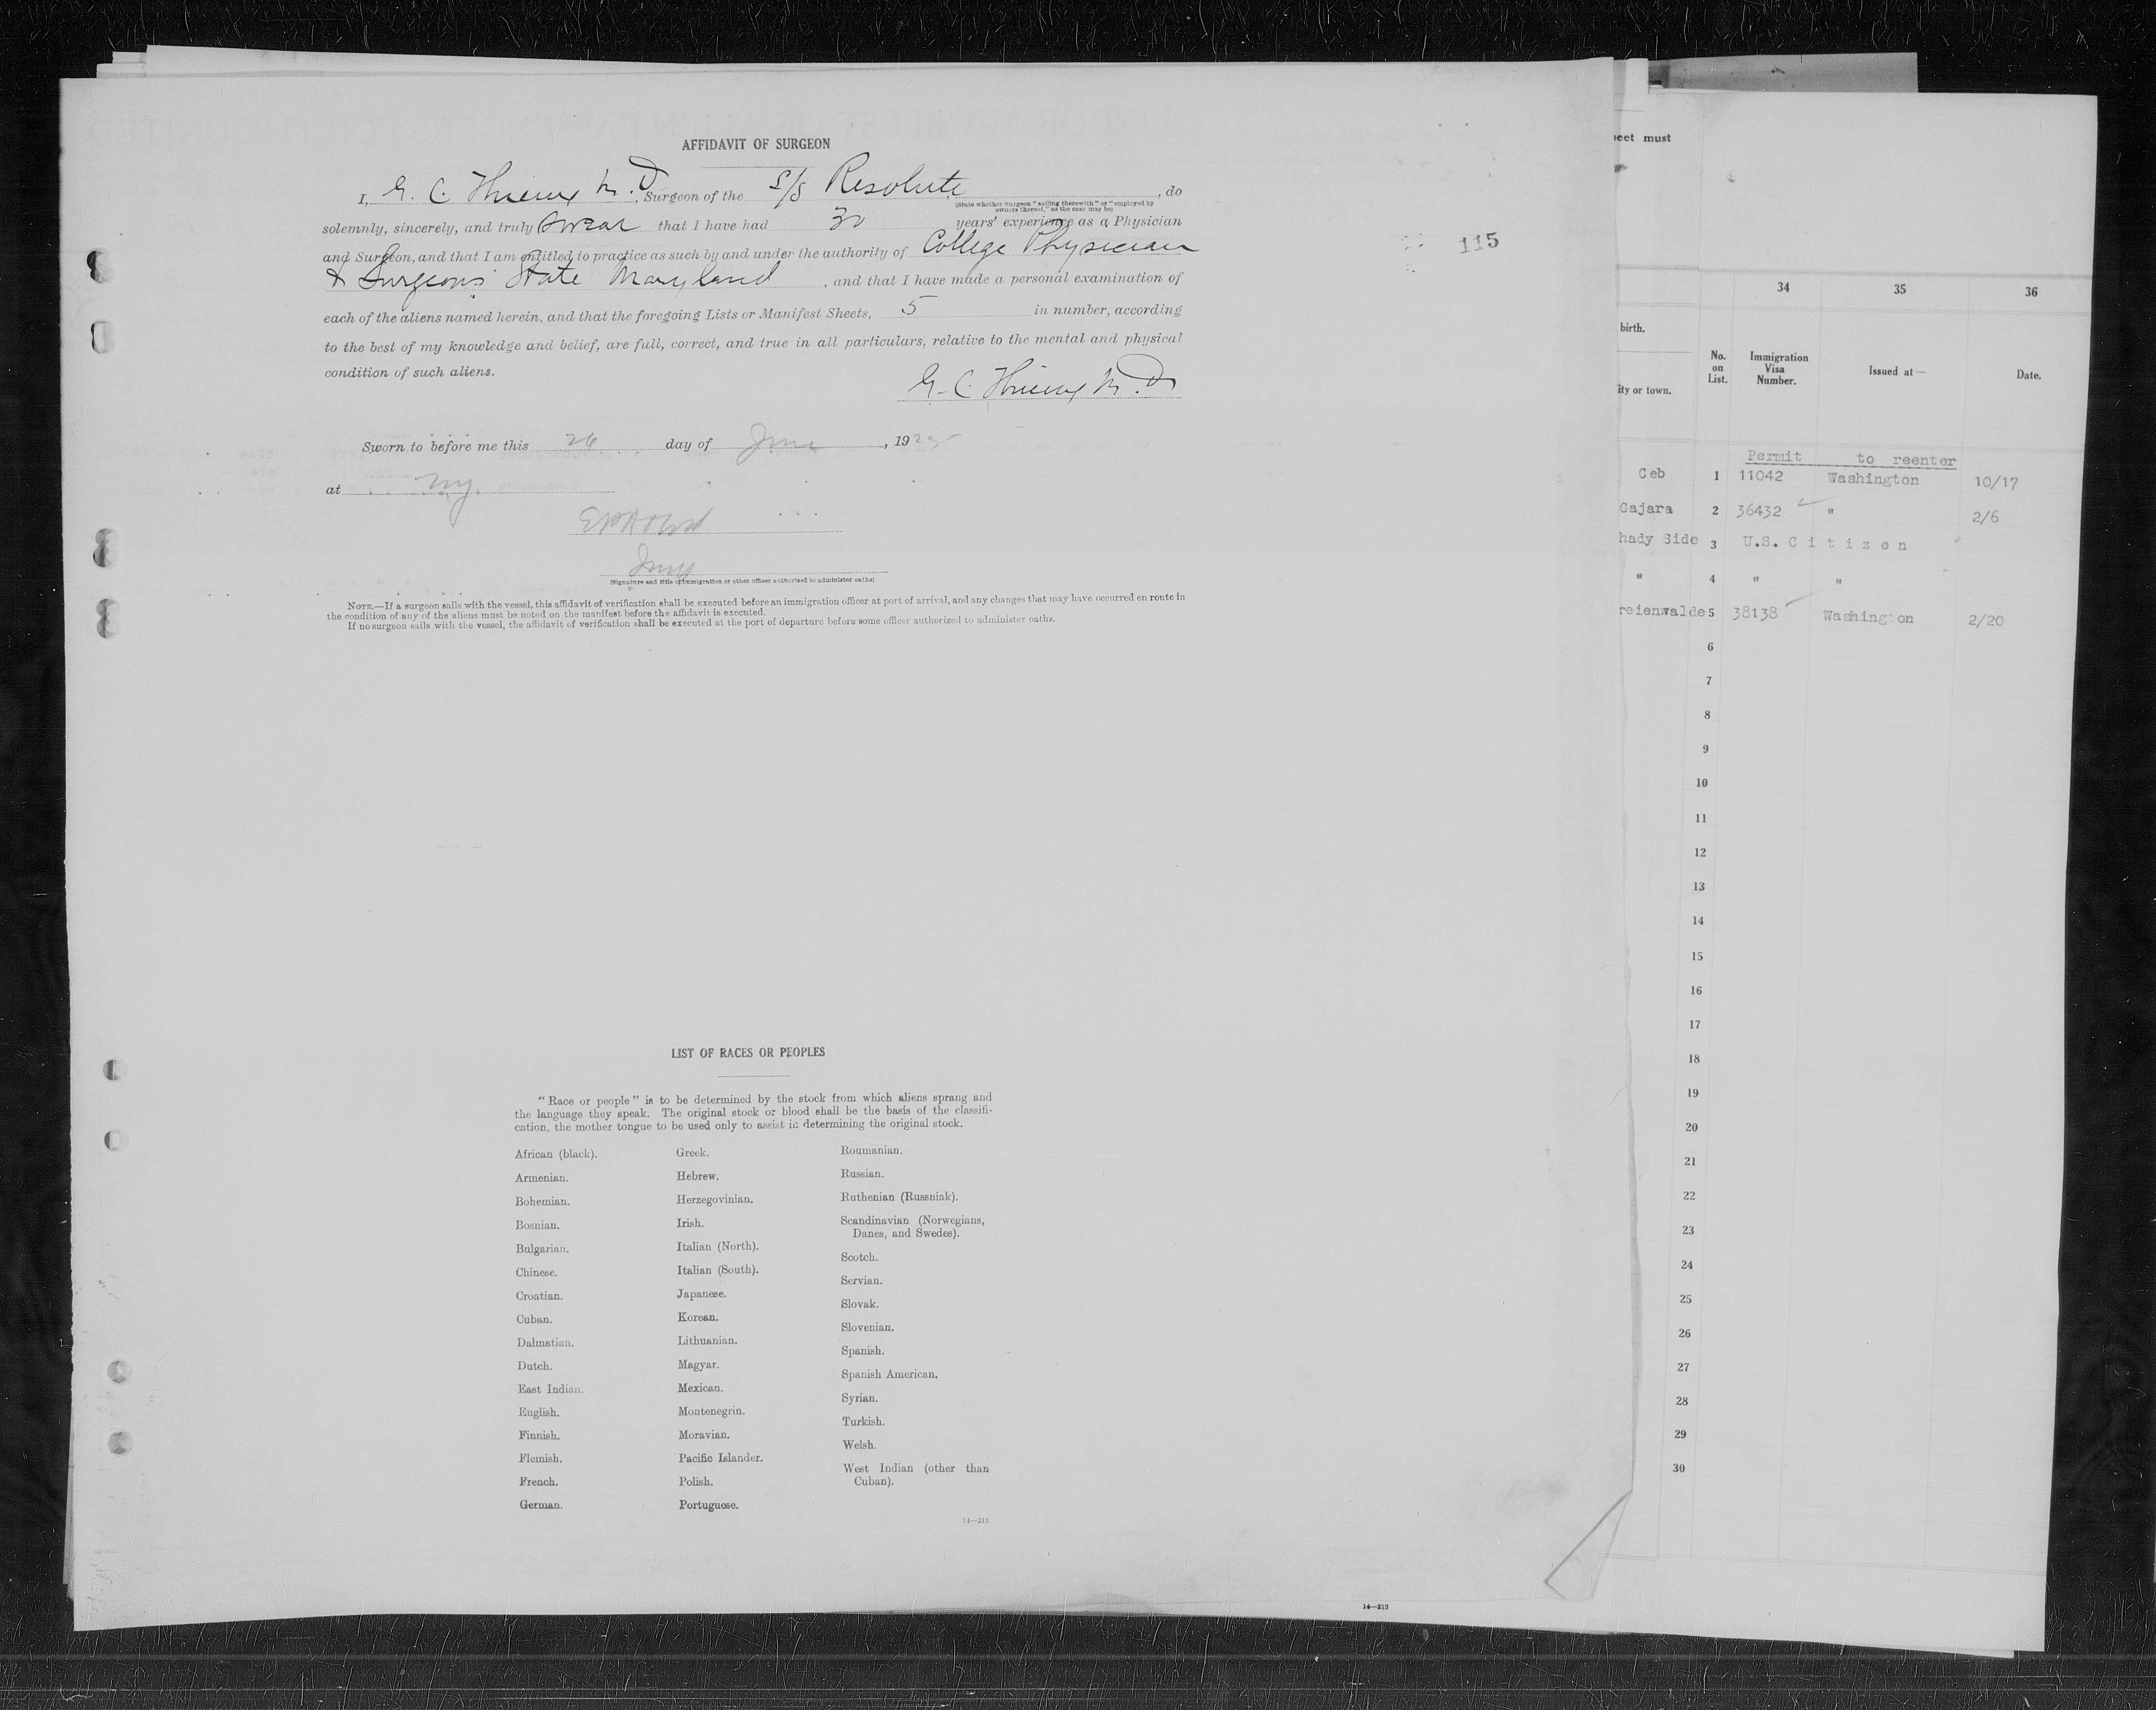 AFFIDAVIT OF SURGEON
I, G. C. M.D., Surgeon of the S/S Resolute, , do
(State whether Surgeon "sailing therewith" or "employed by
owners thereof," as the case may be)
solemnly, sincerely, and truly swear that I have had 30 years' experience as a Physician
and Surgeon, and that I am entitled to practice as such by and under the authority of College Physician
& Surgeons State Maryland, and that I have made a personal examination of
each of the aliens named herein, and that the foregoing Lists or Manifest Sheets, 5 in number, according
to the best of my knowledge and belief, are full, correct, and true in all particulars, relative to the mental and physical
condition of such aliens.
G. C. M.D.
Sworn to before me this 26 day of June, 1925
at NY.
(Signature and title of immigration or other officer authorized to administer oaths)
NOTE.—If a surgeon sails with the vessel, this affidavit of verification shall be executed before an immigration officer at port of arrival, and any changes that may have occurred en route in
the condition of any of the aliens must be noted on the manifest before the affidavit is executed.
If no surgeon sails with the vessel, the affidavit of verification shall be executed at the port of departure before some officer authorized to administer oaths.
115
LIST OF RACES OR PEOPLES
"Race or people" is to be determined by the stock from which aliens sprang and
the language they speak. The original stock or blood shall be the basis of the classifi-
cation, the mother tongue to be used only to assist in determining the original stock.
African (black).
Armenian.
Bohemian.
Bosnian.
Bulgarian.
Chinese.
Croatian.
Cuban.
Dalmatian.
Dutch.
East Indian.
English.
Finnish.
Flemish.
French.
German.
Greek.
Hebrew.
Herzegovinian.
Irish.
Italian (North).
Italian (South).
Japanese.
Korean.
Lithuanian.
Magyar.
Mexican.
Montenegrin.
Moravian.
Pacific Islander.
Polish.
Portuguese.
Roumanian.
Russian.
Ruthenian (Russniak).
Scandinavian (Norwegians,
Danes, and Swedes).
Scotch.
Servian.
Slovak.
Slovenian.
Spanish.
Spanish American.
Syrian.
Turkish.
Welsh.
West Indian (other than
Cuban).
14—213
eet must
34 35 36
birth.
ity or town.
No.
on
List.
Immigration
Visa
Number.
Issued at—
Date.
Permit to reenter
Ceb 1 11042 Washington 10/17
Cajara 2 36432 " 2/6
hady Side 3 U.S. Citizen
" 4 " "
reienwalde 5 38138 Washington 2/20
6
7
8
9
10
11
12
13
14
15
16
17
18
19
20
21
22
23
24
25
26
27
28
29
30
14—213